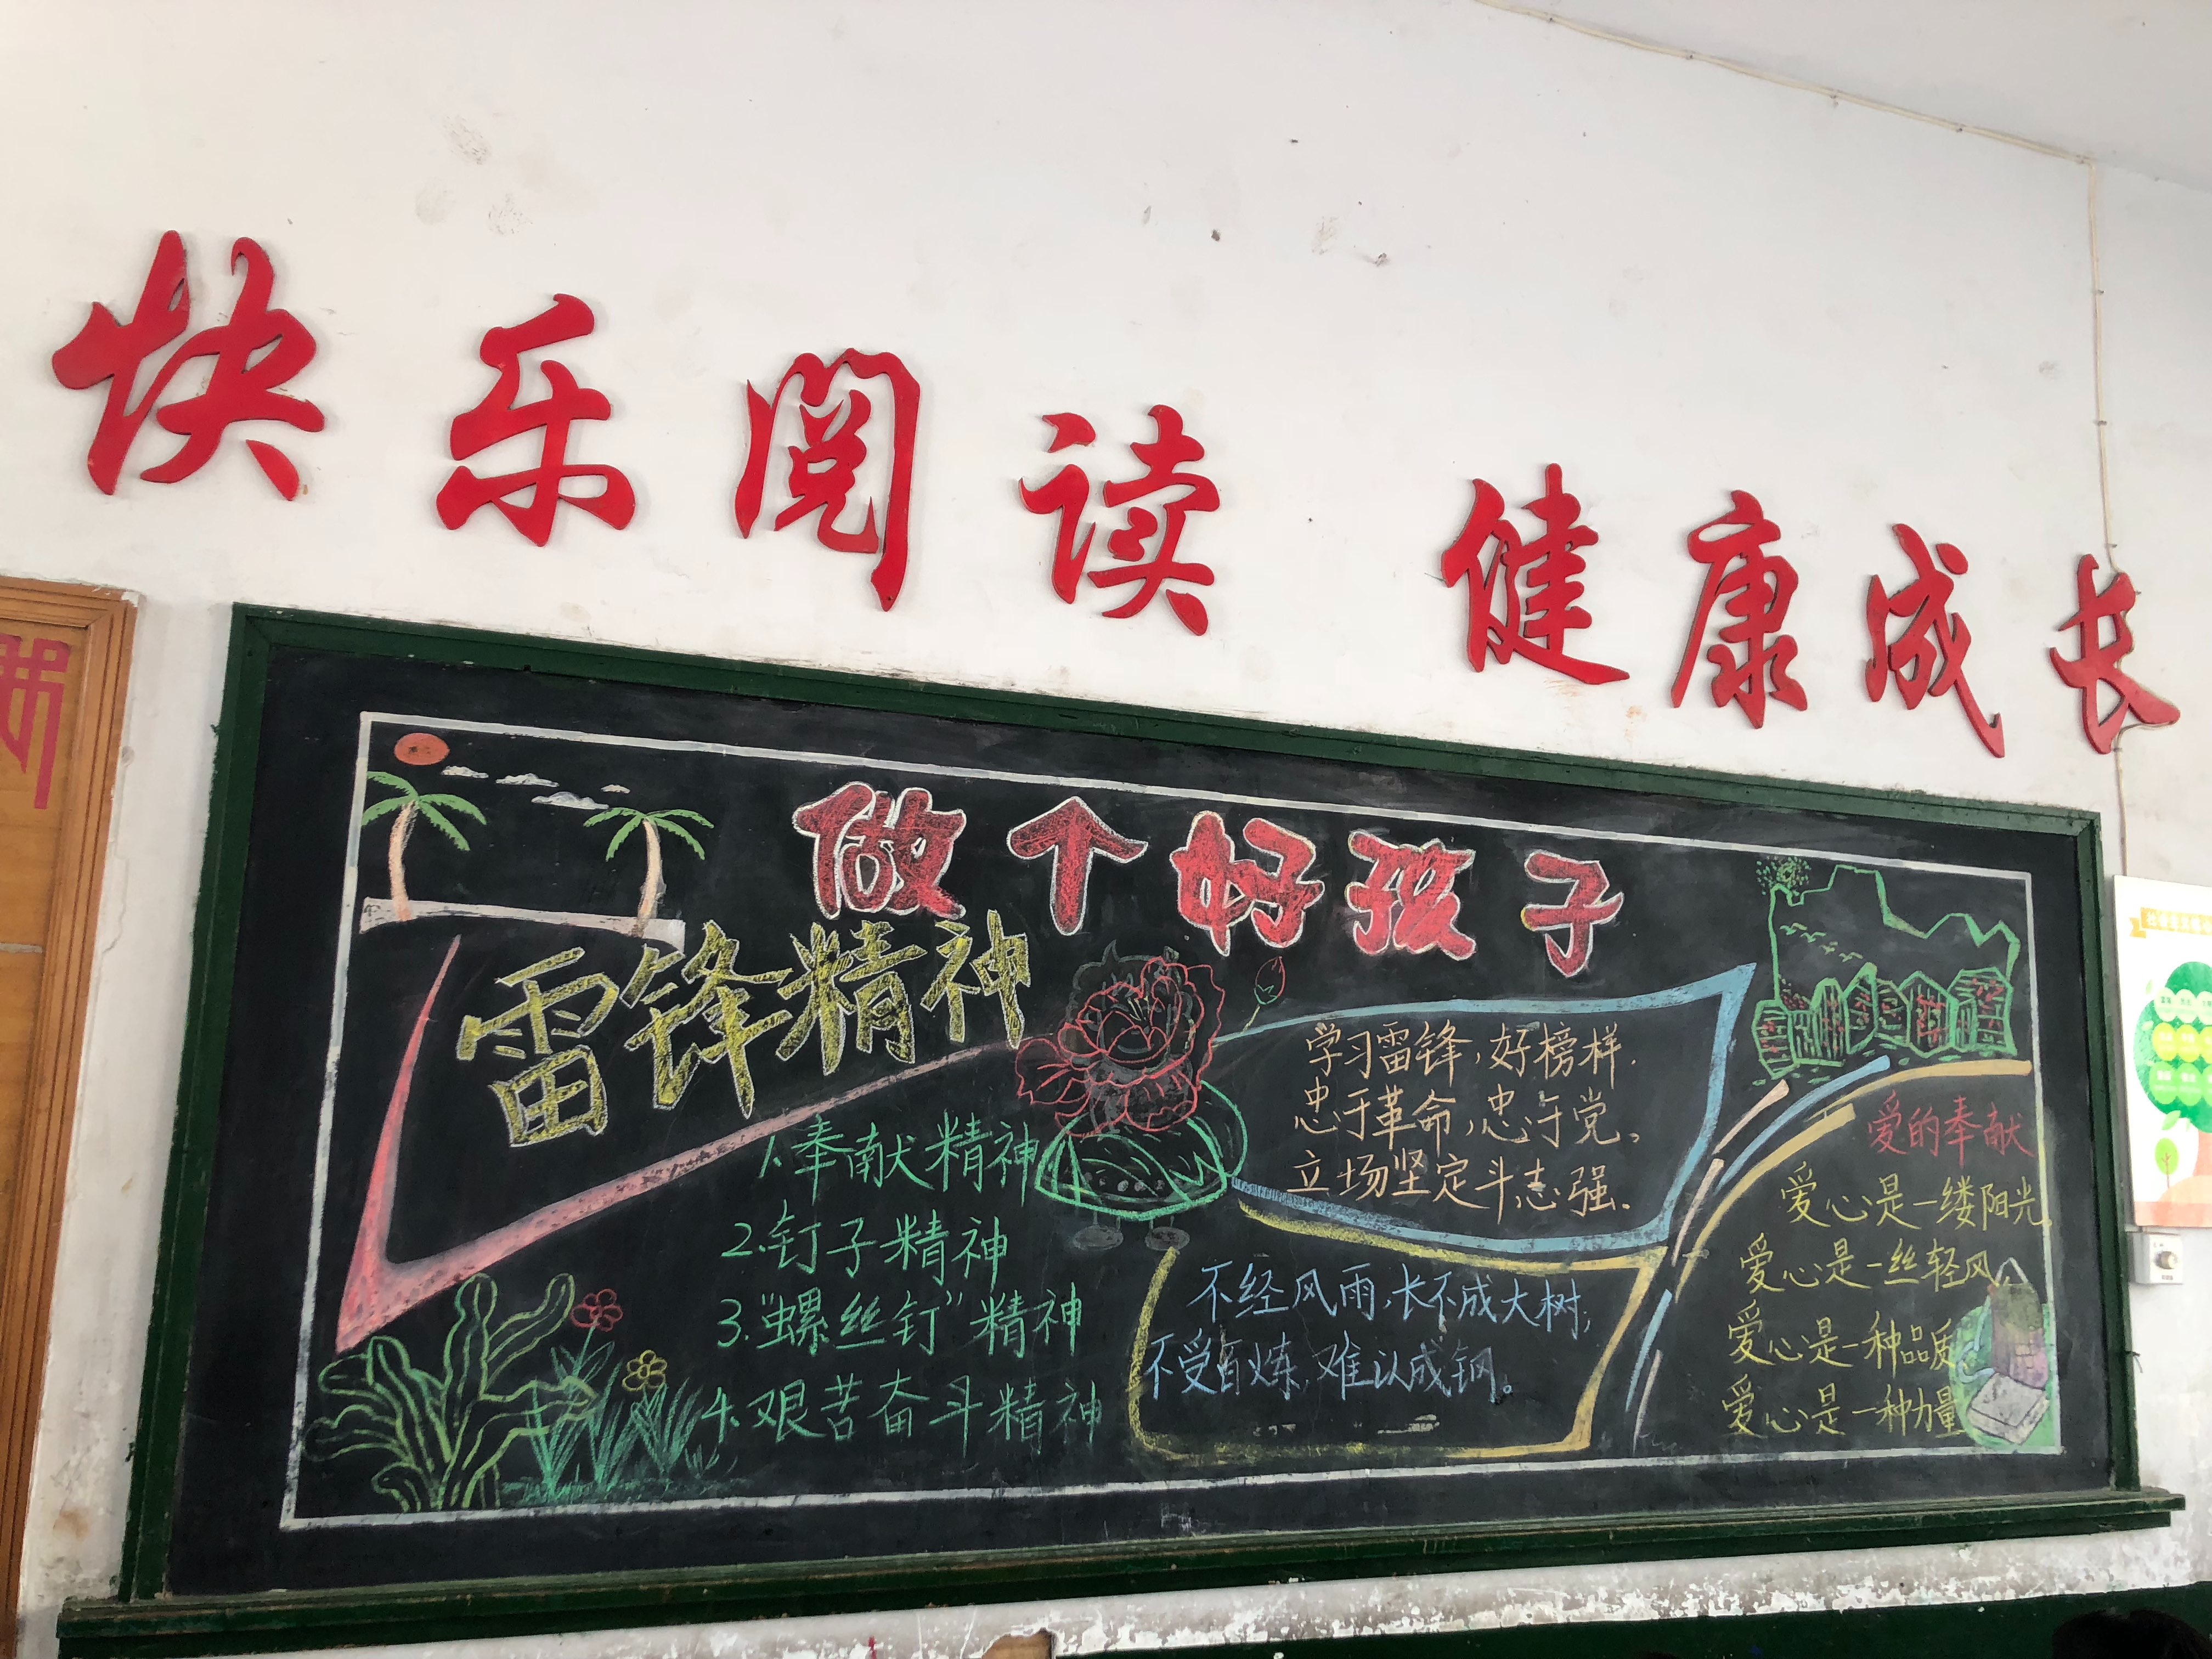 快乐阅读 健康成长
做个好孩子
雷锋精神
1.奉献精神
2.钉子精神
3.“螺丝钉”精神
4.艰苦奋斗精神
学习雷锋,好榜样.
忠于革命,忠于党。
立场坚定斗志强.
不经风雨,长不成大树;
不受百炼,难以成钢。
爱的奉献
爱心是一缕阳光,
爱心是一丝轻风,
爱心是一种品质,
爱心是一种力量